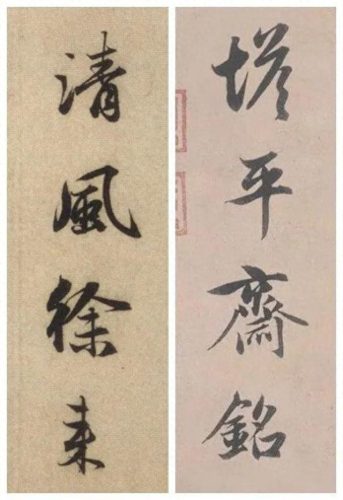 平齋銘
清風徐来